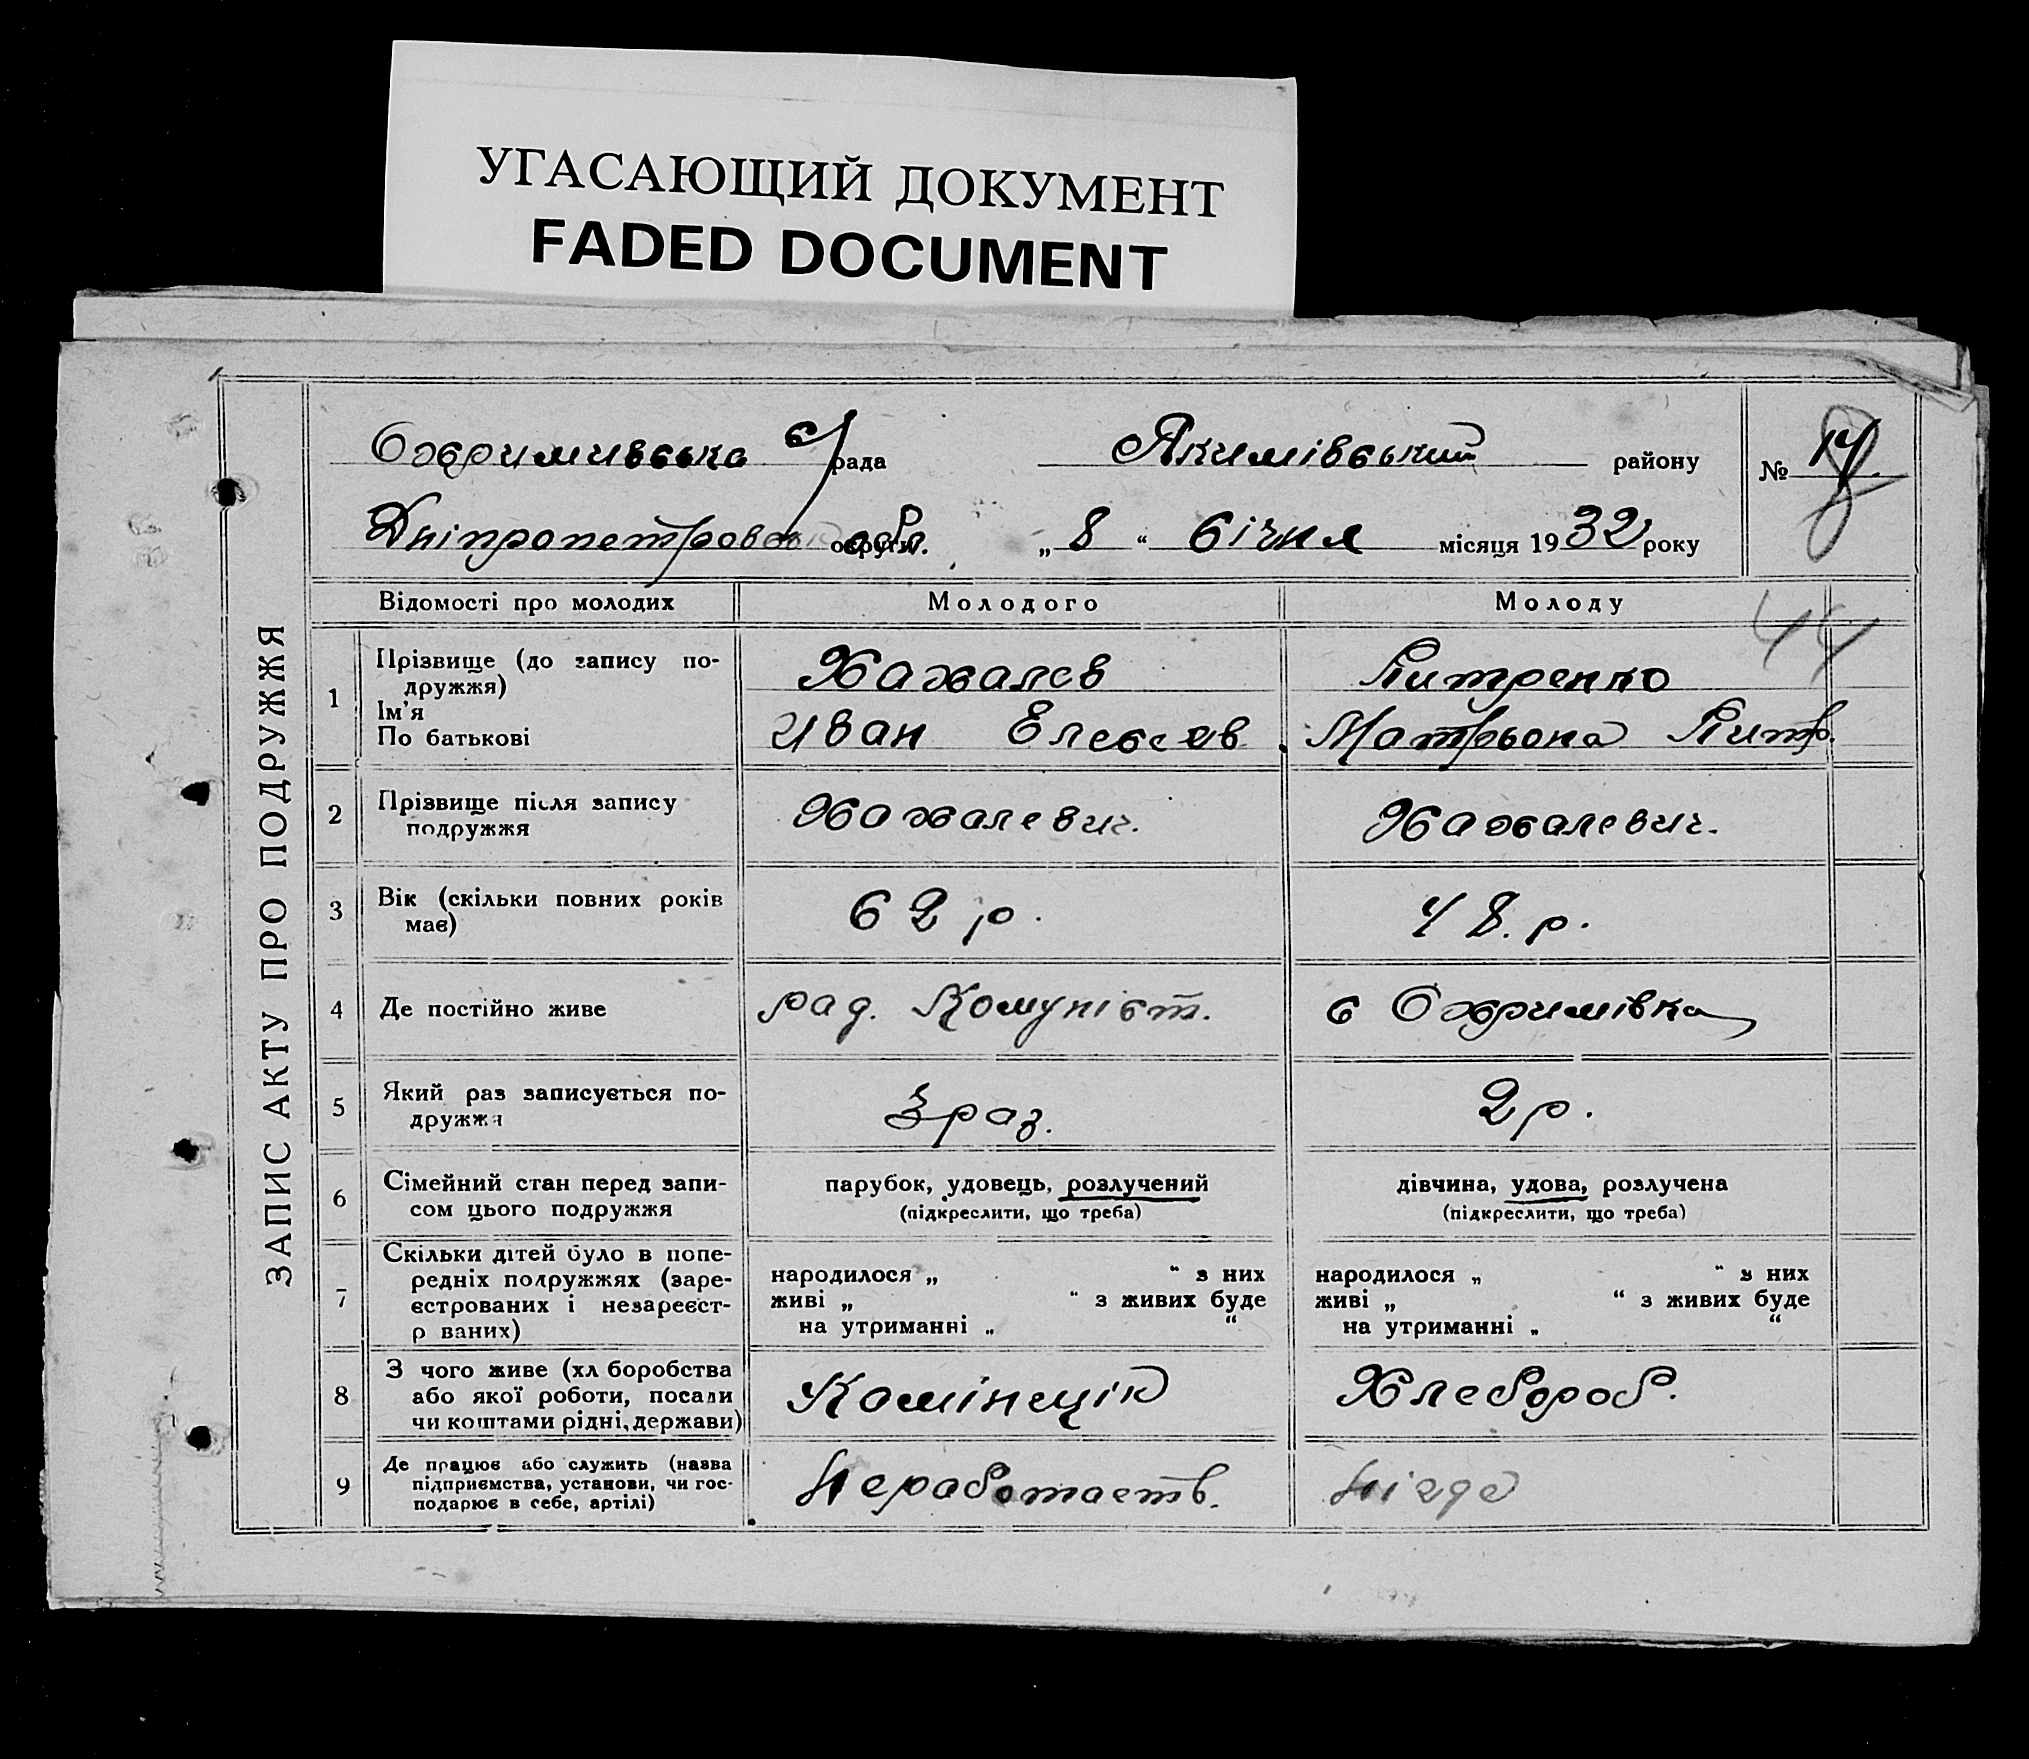 УГАСАЮЩИЙ ДОКУМЕНТ
FADED DOCUMENT
ЗАПИС АКТУ ПРО ПОДРУЖЖЯ
Охримивська с/рада Якимівський району № 14
Дніпропетровськ обл. округи „ 8 “ Січня місяця 1932 року
Відомості про молодих Молодого Молоду
44
1 Прізвище (до запису по-
дружжя)
Ім'я
По батькові
Жажалєв
Иван Елесеев
Митренко
Мотрьона Митр.
2 Прізвище після запису
подружжя
Жажалевич.
Жажалевич.
3 Вік (скільки повних років
має)
62 р.
48. р.
4 Де постійно живе
рад. Комуніст.
с Охримівка
5 Який раз записується по-
дружжя
3 раз.
2 р.
6 Сімейний стан перед запи-
сом цього подружжя
парубок, удовець, розлучений
(підкреслити, що треба)
дівчина, удова, розлучена
(підкреслити, що треба)
7 Скільки дітей було в попе-
редніх подружжях (заре-
єстрованих і незареєст-
р ваних)
народилося „ “ з них
живі „ “ з живих буде
на утриманні „ “
народилося „ “ з них
живі „ “ з живих буде
на утриманні „ “
8 З чого живе (хл боробства
або якої роботи, посади
чи коштами рідні, держави)
Камінщік
Хлебороб.
9 Де працює або служить (назва
підприємства, установи, чи гос-
подарює в себе, артілі)
Неработаеть.
Нігде